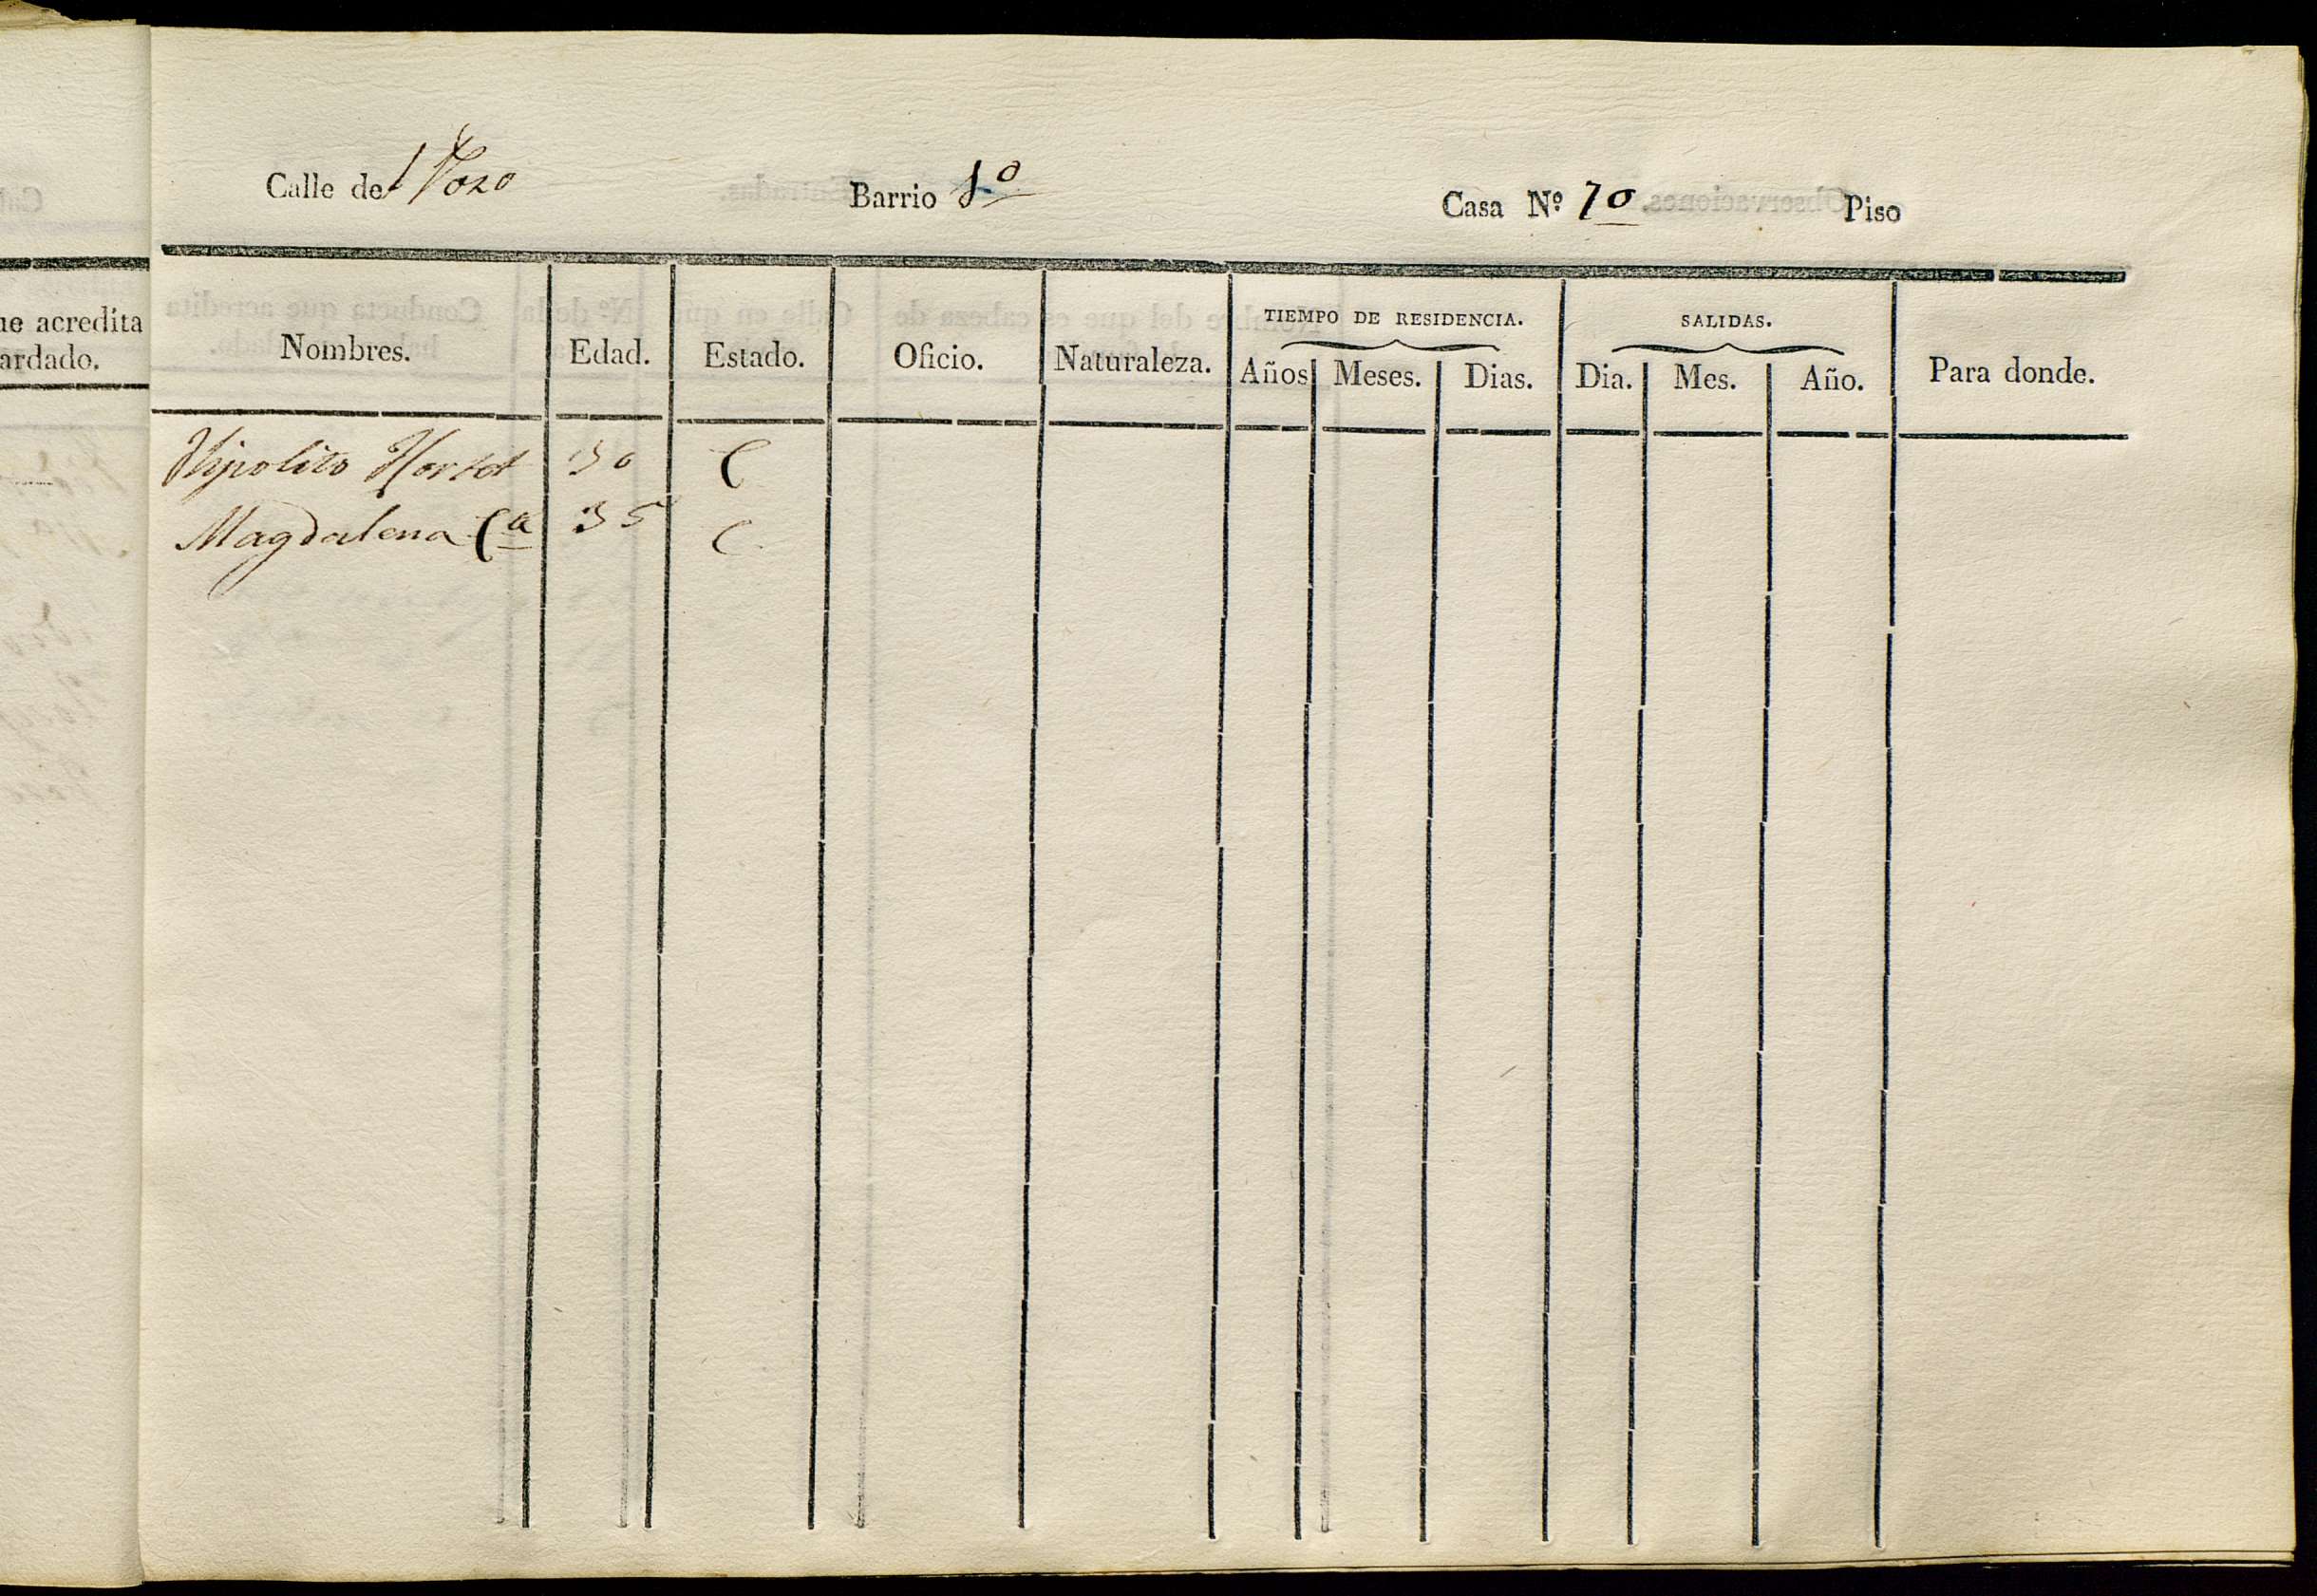 Calle del Pozo Barrio 1º Casa Nº 70. Piso
ue acredita
ardado.
TIEMPO DE RESIDENCIA. SALIDAS.
Nombres. Edad. Estado. Oficio. Naturaleza. Años Meses. Dias. Dia. Mes. Año. Para donde.
Hipolito 30 C
Magdalena Cª 35 C